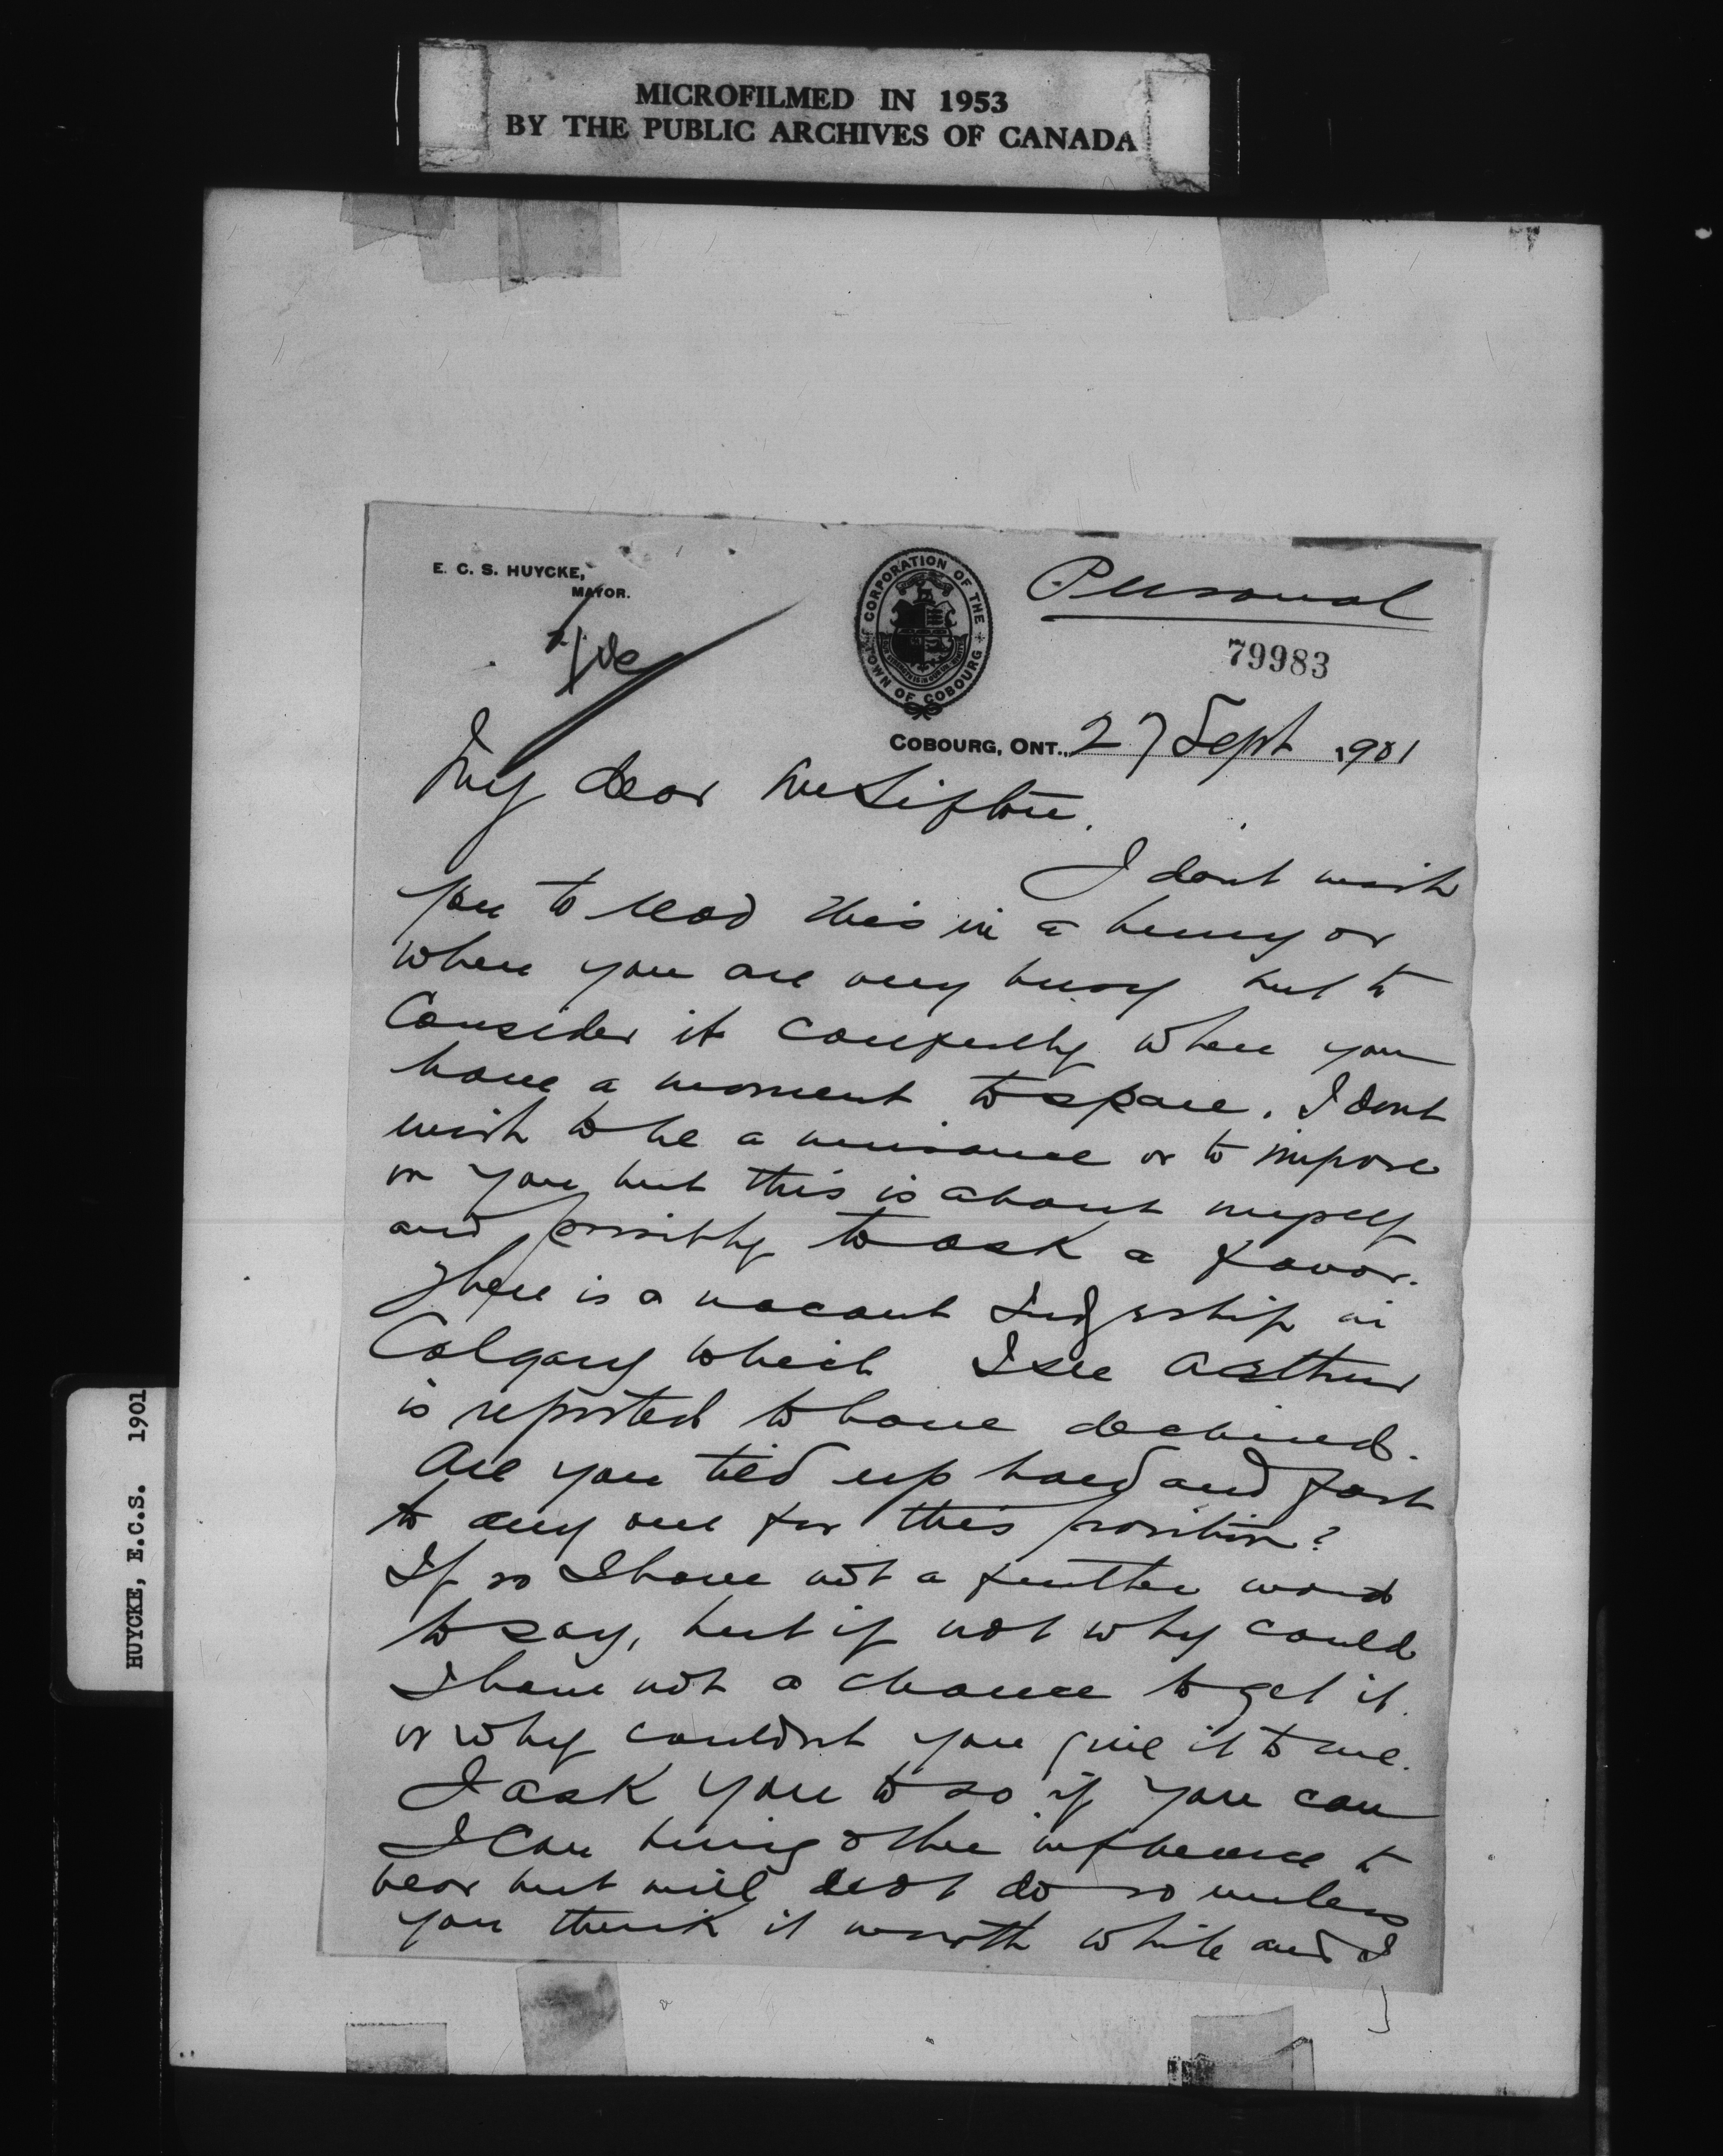 MICROFILMED IN 1953
BY THE PUBLIC ARCHIVES OF CANADA
E. C. S. HUYCKE,
MAYOR.
CORPORATION OF THE
TOWN OF COBOURG
Personal
79983
COBOURG, ONT., 27 Sept 1901
My dear Mr Sifton.
I dont wish
you to read this in a hurry or
when you are very busy but to
Consider it carefully when you
have a moment to spare. I dont
wish to be a nuisance or to impose
on you but this is about myself
and possibly to ask a favor.
There is a vacant Judgeship in
Calgary which I see Arthur
is reported to have declined.
Are you tied up hard and fast
to any one for this position?
If so I have not a further word
to say, but if not why could
I have not a chance to get it
or why couldnt you give it to me.
I ask you to so if you can
I can bring other influence to
bear but will not do so unless
you think it worth while and I
HUYCKE, E.C.S. 1901